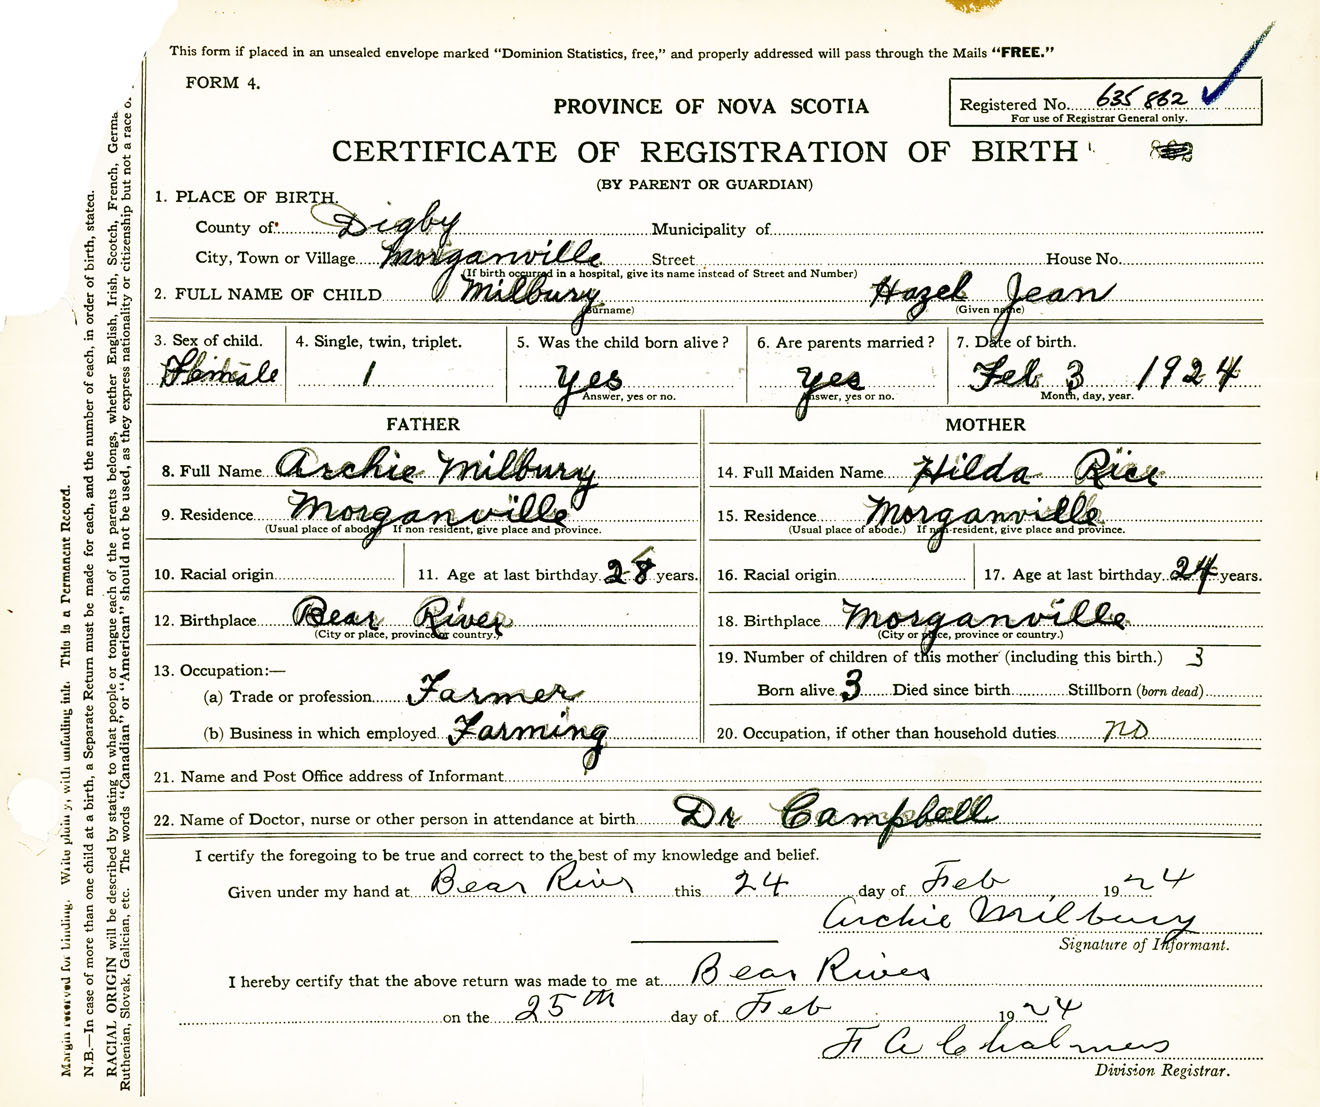 This form if placed in an unsealed envelope marked "Dominion Statistics, free," and properly addressed will pass through the Mails "FREE."
FORM 4.
Registered No. 635 862
For use of Registrar General only.
PROVINCE OF NOVA SCOTIA
CERTIFICATE OF REGISTRATION OF BIRTH
(BY PARENT OR GUARDIAN)
1. PLACE OF BIRTH.
County of Digby Municipality of
City, Town or Village Morganville Street House No.
(If birth occurred in a hospital, give its name instead of Street and Number)
2. FULL NAME OF CHILD Milbury Hazel Jean
(Surname) (Given name)
3. Sex of child. 4. Single, twin, triplet. 5. Was the child born alive? 6. Are parents married? 7. Date of birth.
Female 1 Yes Yes Feb 3 1924
Answer, yes or no. Answer, yes or no. Month, day, year.
FATHER MOTHER
8. Full Name Archie Milbury 14. Full Maiden Name Hilda Rice
9. Residence Morganville 15. Residence Morganville
(Usual place of abode) If non resident, give place and province. (Usual place of abode.) If non-resident, give place and province.
10. Racial origin 11. Age at last birthday 28 years. 16. Racial origin 17. Age at last birthday 24 years.
12. Birthplace Bear River 18. Birthplace Morganville
(City or place, province or country.) (City or place, province or country.)
13. Occupation:— 19. Number of children of this mother (including this birth.) 3
(a) Trade or profession Farmer Born alive 3 Died since birth Stillborn (born dead)
(b) Business in which employed Farming 20. Occupation, if other than household duties no
21. Name and Post Office address of Informant
22. Name of Doctor, nurse or other person in attendance at birth Dr Campbell
I certify the foregoing to be true and correct to the best of my knowledge and belief.
Given under my hand at Bear River this 24 day of Feb 1924
Archie Milbury
Signature of Informant.
I hereby certify that the above return was made to me at Bear River
on the 25th day of Feb 1924
F A Chalmers
Division Registrar.
Margin reserved for binding. Write plainly, with unfading ink. This is a Permanent Record.
N.B.—In case of more than one child at a birth, a Separate Return must be made for each, and the number of each, in order of birth, stated.
RACIAL ORIGIN will be described by stating to what people or tongue each of the parents belongs, whether English, Irish, Scotch, French, Germa
Ruthenian, Slovak, Galician, etc. The words "Canadian" or "American" should not be used, as they express nationality or citizenship but not a race o.